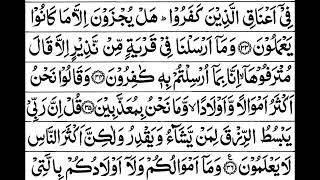 فِيْۤ اَعْنَاقِ الَّذِيْنَ كَفَرُوْا ؕ هَلْ يُجْزَوْنَ اِلَّا مَا كَانُوْا
يَعْمَلُوْنَ ﴿۳۳﴾ وَمَاۤ اَرْسَلْنَا فِيْ قَرْيَةٍ مِّنْ نَّذِيْرٍ اِلَّا قَالَ
مُتْرَفُوْهَاۤ ۙ اِنَّا بِمَاۤ اُرْسِلْتُمْ بِهٖ كٰفِرُوْنَ ﴿۳۴﴾ وَقَالُوْا نَحْنُ
اَكْثَرُ اَمْوَالًا وَّاَوْلَادًا ۙ وَّمَا نَحْنُ بِمُعَذَّبِيْنَ ﴿۳۵﴾ قُلْ اِنَّ رَبِّيْ
يَبْسُطُ الرِّزْقَ لِمَنْ يَّشَآءُ وَيَقْدِرُ وَلٰكِنَّ اَكْثَرَ النَّاسِ
لَا يَعْلَمُوْنَ ﴿۳۶﴾ وَمَاۤ اَمْوَالُكُمْ وَلَاۤ اَوْلَادُكُمْ بِالَّتِيْ